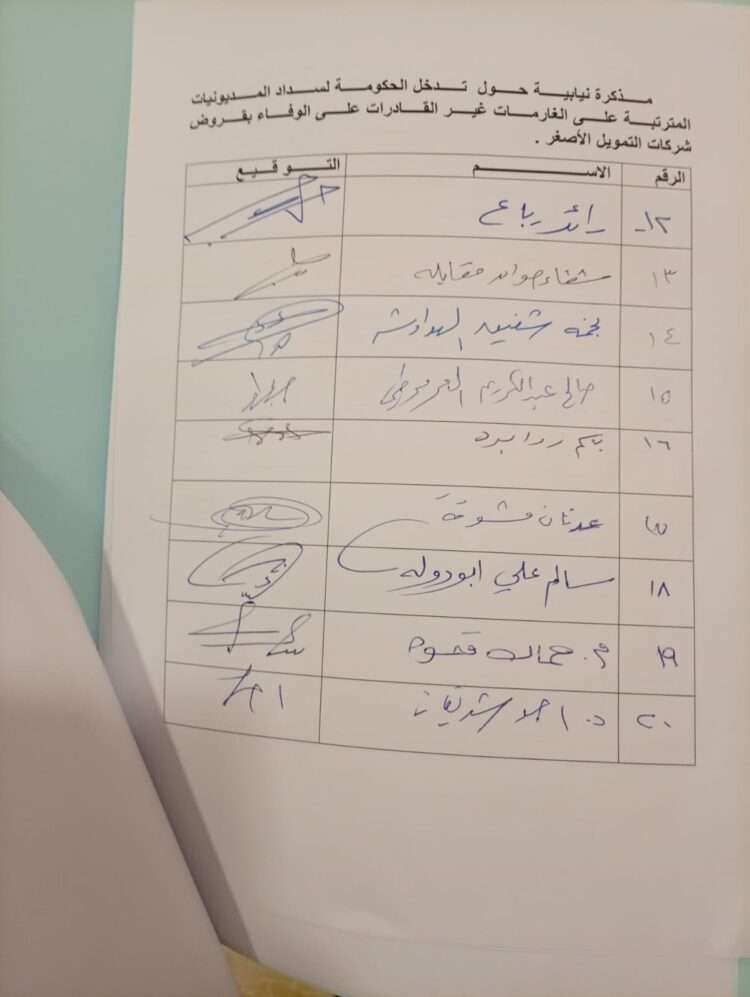 مذكرة نيابية حول تدخل الحكومة لسداد المديونيات
المترتبة على الغارمات غير القادرات على الوفاء بقروض
شركات التمويل الأصغر .
الرقم الاســـم التوقيع
١٢- رائد رباع
١٣ شفاء صوان مقابله
١٤ شفيق الهوادشه
١٥ صالح عبدالكريم العرموطي
١٦ باسم روابده
١٧ عدنان مشوقة
١٨ سالم علي ابودوله
١٩ م. جمال قموه
٢٠ د.